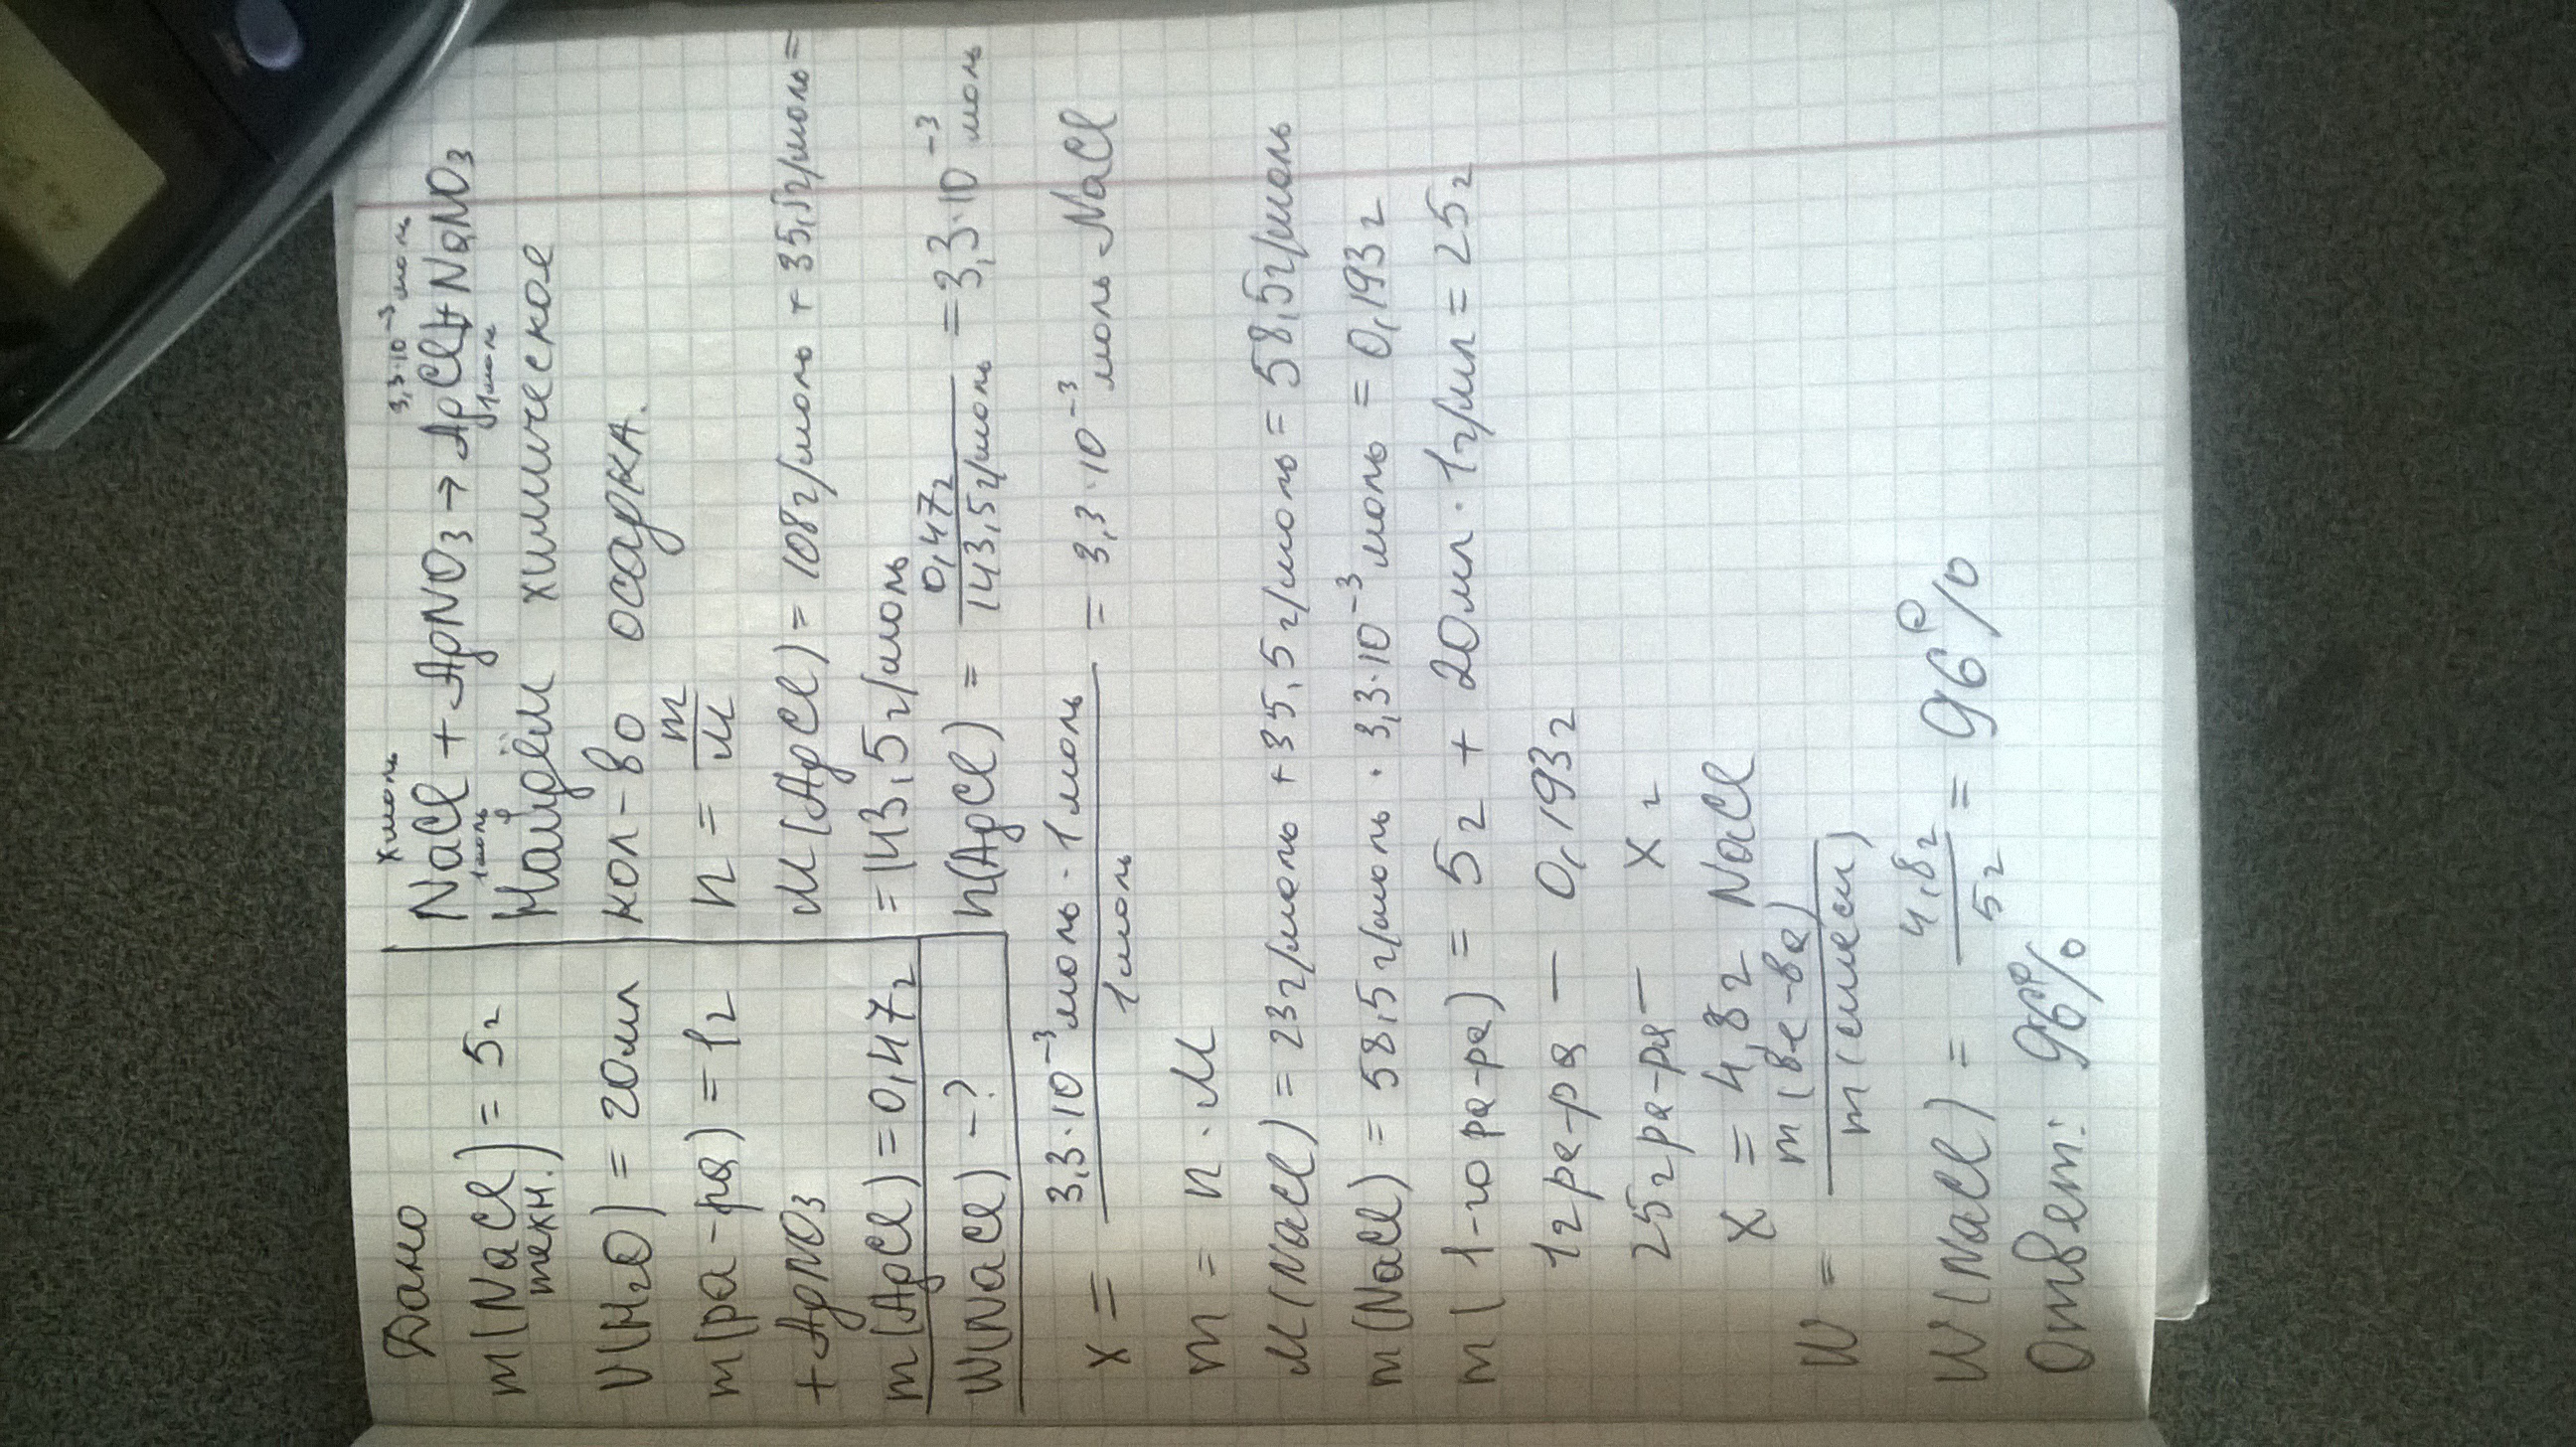 Дано
m(NaCl) = 5г
техн.
V(H2O) = 20мл
m(ра-ра) = 1г
+ AgNO3
m(AgCl) = 0,47г
W(NaCl) - ?
x моль 3,3·10⁻³ моль
NaCl + AgNO3 → AgCl↓ + NaNO3
1моль 1моль
Найдём химическое
кол-во осадка.
n = m/M
M(AgCl) = 108г/моль + 35,5г/моль =
= 143,5г/моль
n(AgCl) = 0,47г/143,5г/моль = 3,3·10⁻³ моль
x = 3,3·10⁻³ моль · 1 моль/1 моль = 3,3·10⁻³ моль NaCl
m = n · M
M(NaCl) = 23г/моль + 35,5г/моль = 58,5г/моль
m(NaCl) = 58,5г/моль · 3,3·10⁻³ моль = 0,193г
m(1-го ра-ра) = 5г + 20мл · 1г/мл = 25г
1г ра-ра — 0,193г
25г ра-ра — x г
x = 4,8г NaCl
W = m(ве-ва)/m(смеси)
W(NaCl) = 4,8г/5г = 96%
Ответ: 96%